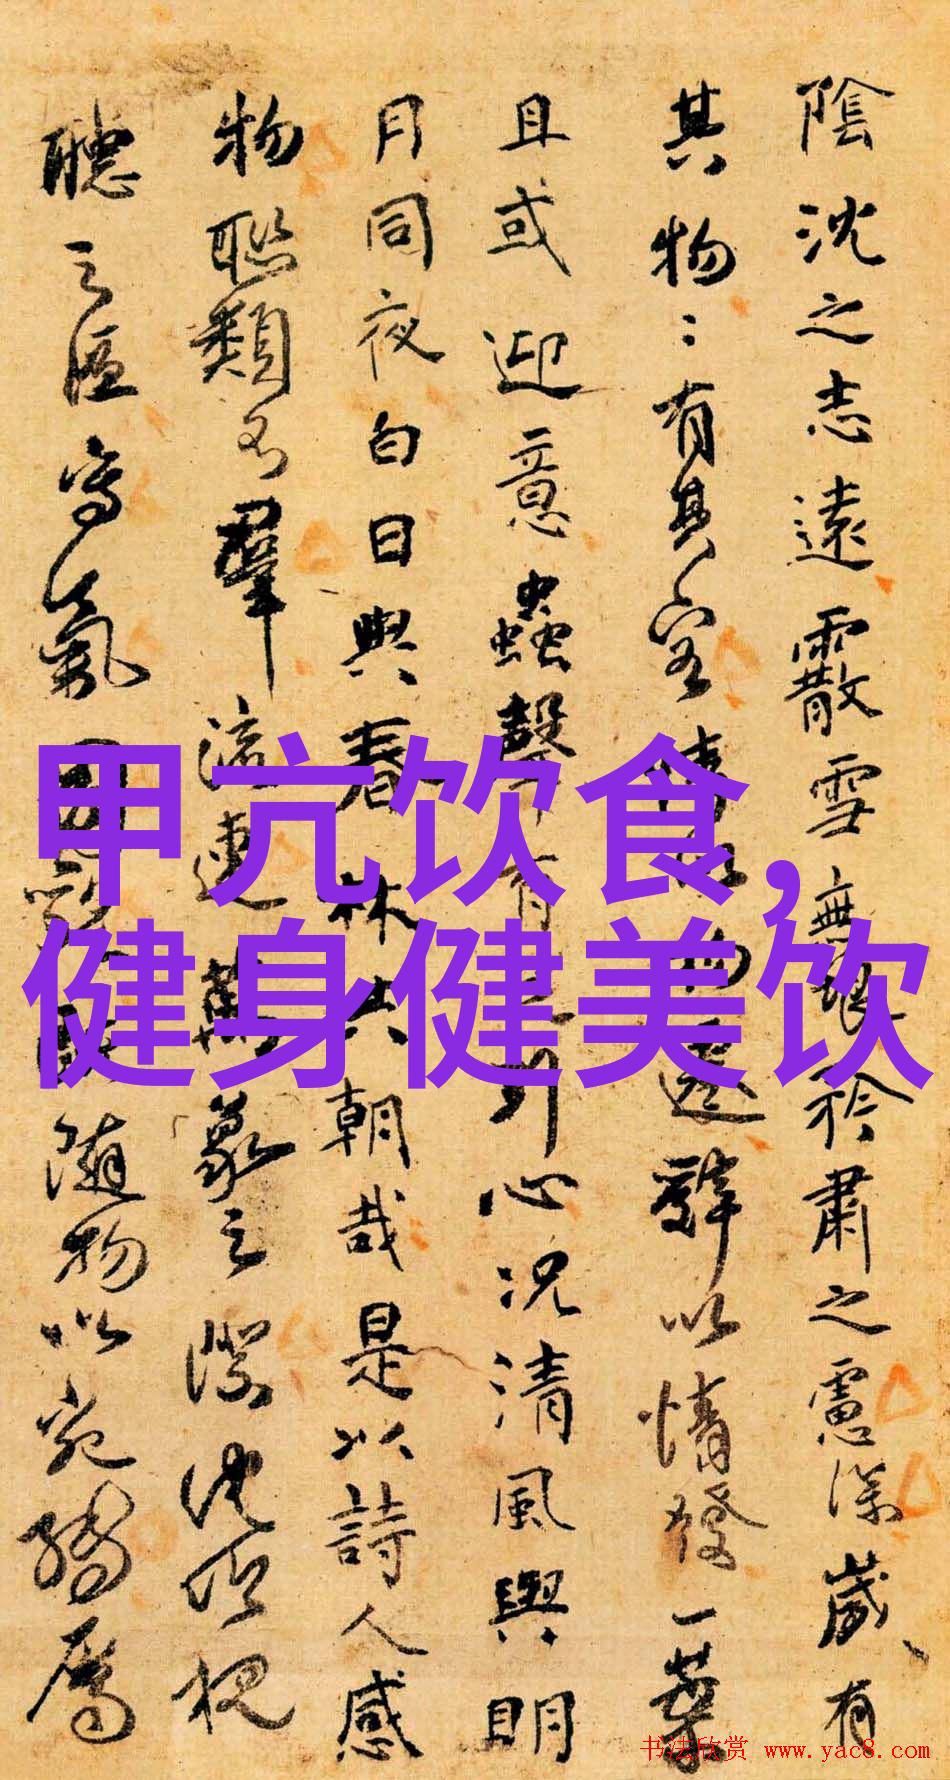 陰沈之志遠霰雪無垠矜肅之慮深歲有
其物物有其容情以物遷辭以情發一葉
且或迎意蟲聲有足引心況清風與明
月同夜白日與春林共朝哉是以詩人感
物聯類不窮流連萬象之際沈吟視
聽之區寫氣圖貌既隨物以宛轉屬
甲亢饮食,
健身健美饮
书法欣赏 www.yac8.com